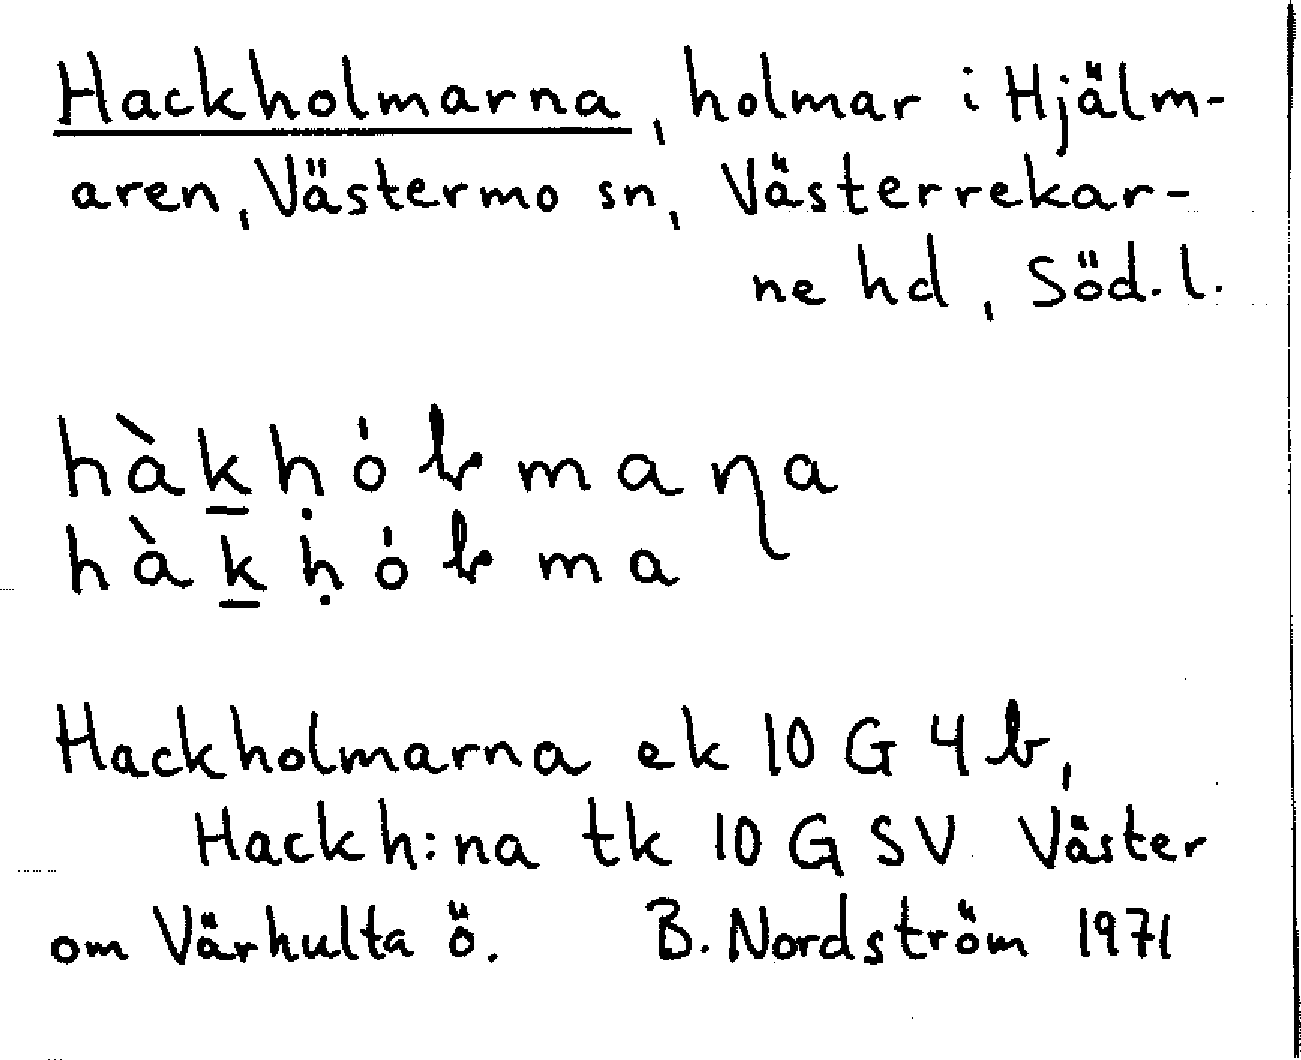 Hackholmarna, holmar i Hjälm-
aren, Västermo sn, Västerrekar-
ne hd, Söd. l.
hàk̲ḥóƚmaɳa
hàk̲ḥóƚma
Hackholmarna ek 10 G 4 b,
Hackh:na tk 10 G SV Väster
om Vårhulta ö. B. Nordström 1971